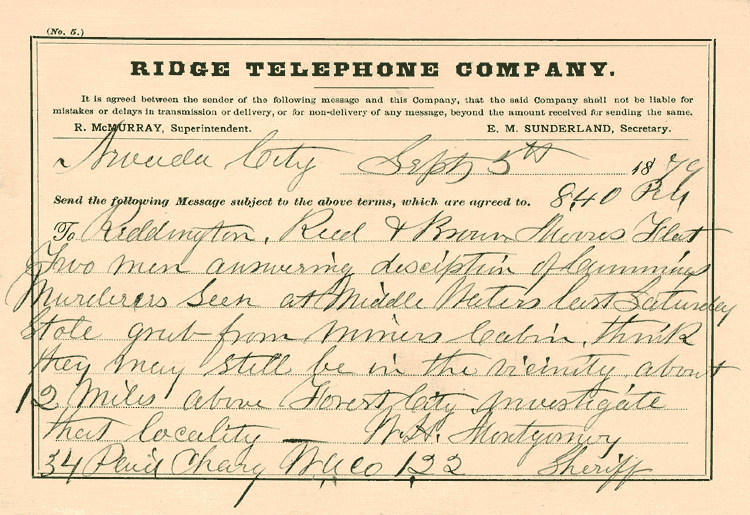 (No. 5.)
RIDGE TELEPHONE COMPANY.
It is agreed between the sender of the following message and this Company, that the said Company shall not be liable for
mistakes or delays in transmission or delivery, or for non-delivery of any message, beyond the amount received for sending the same.
R. McMURRAY, Superintendent. E. M. SUNDERLAND, Secretary.
Nevada City Sept 5th 1879
Send the following Message subject to the above terms, which are agreed to. 8.40 PM
To Reddington, Reed & Brown Moores Flat
Two men answering desciption of Cummings
Murderers seen at Middle Waters last Saturday
Stole grub from Miners Cabin, think
they may still be in the vicinity about
12 Miles above Forest City investigate
that locality — W.H. Montgomery
34 Paid Charg 122 Sheriff